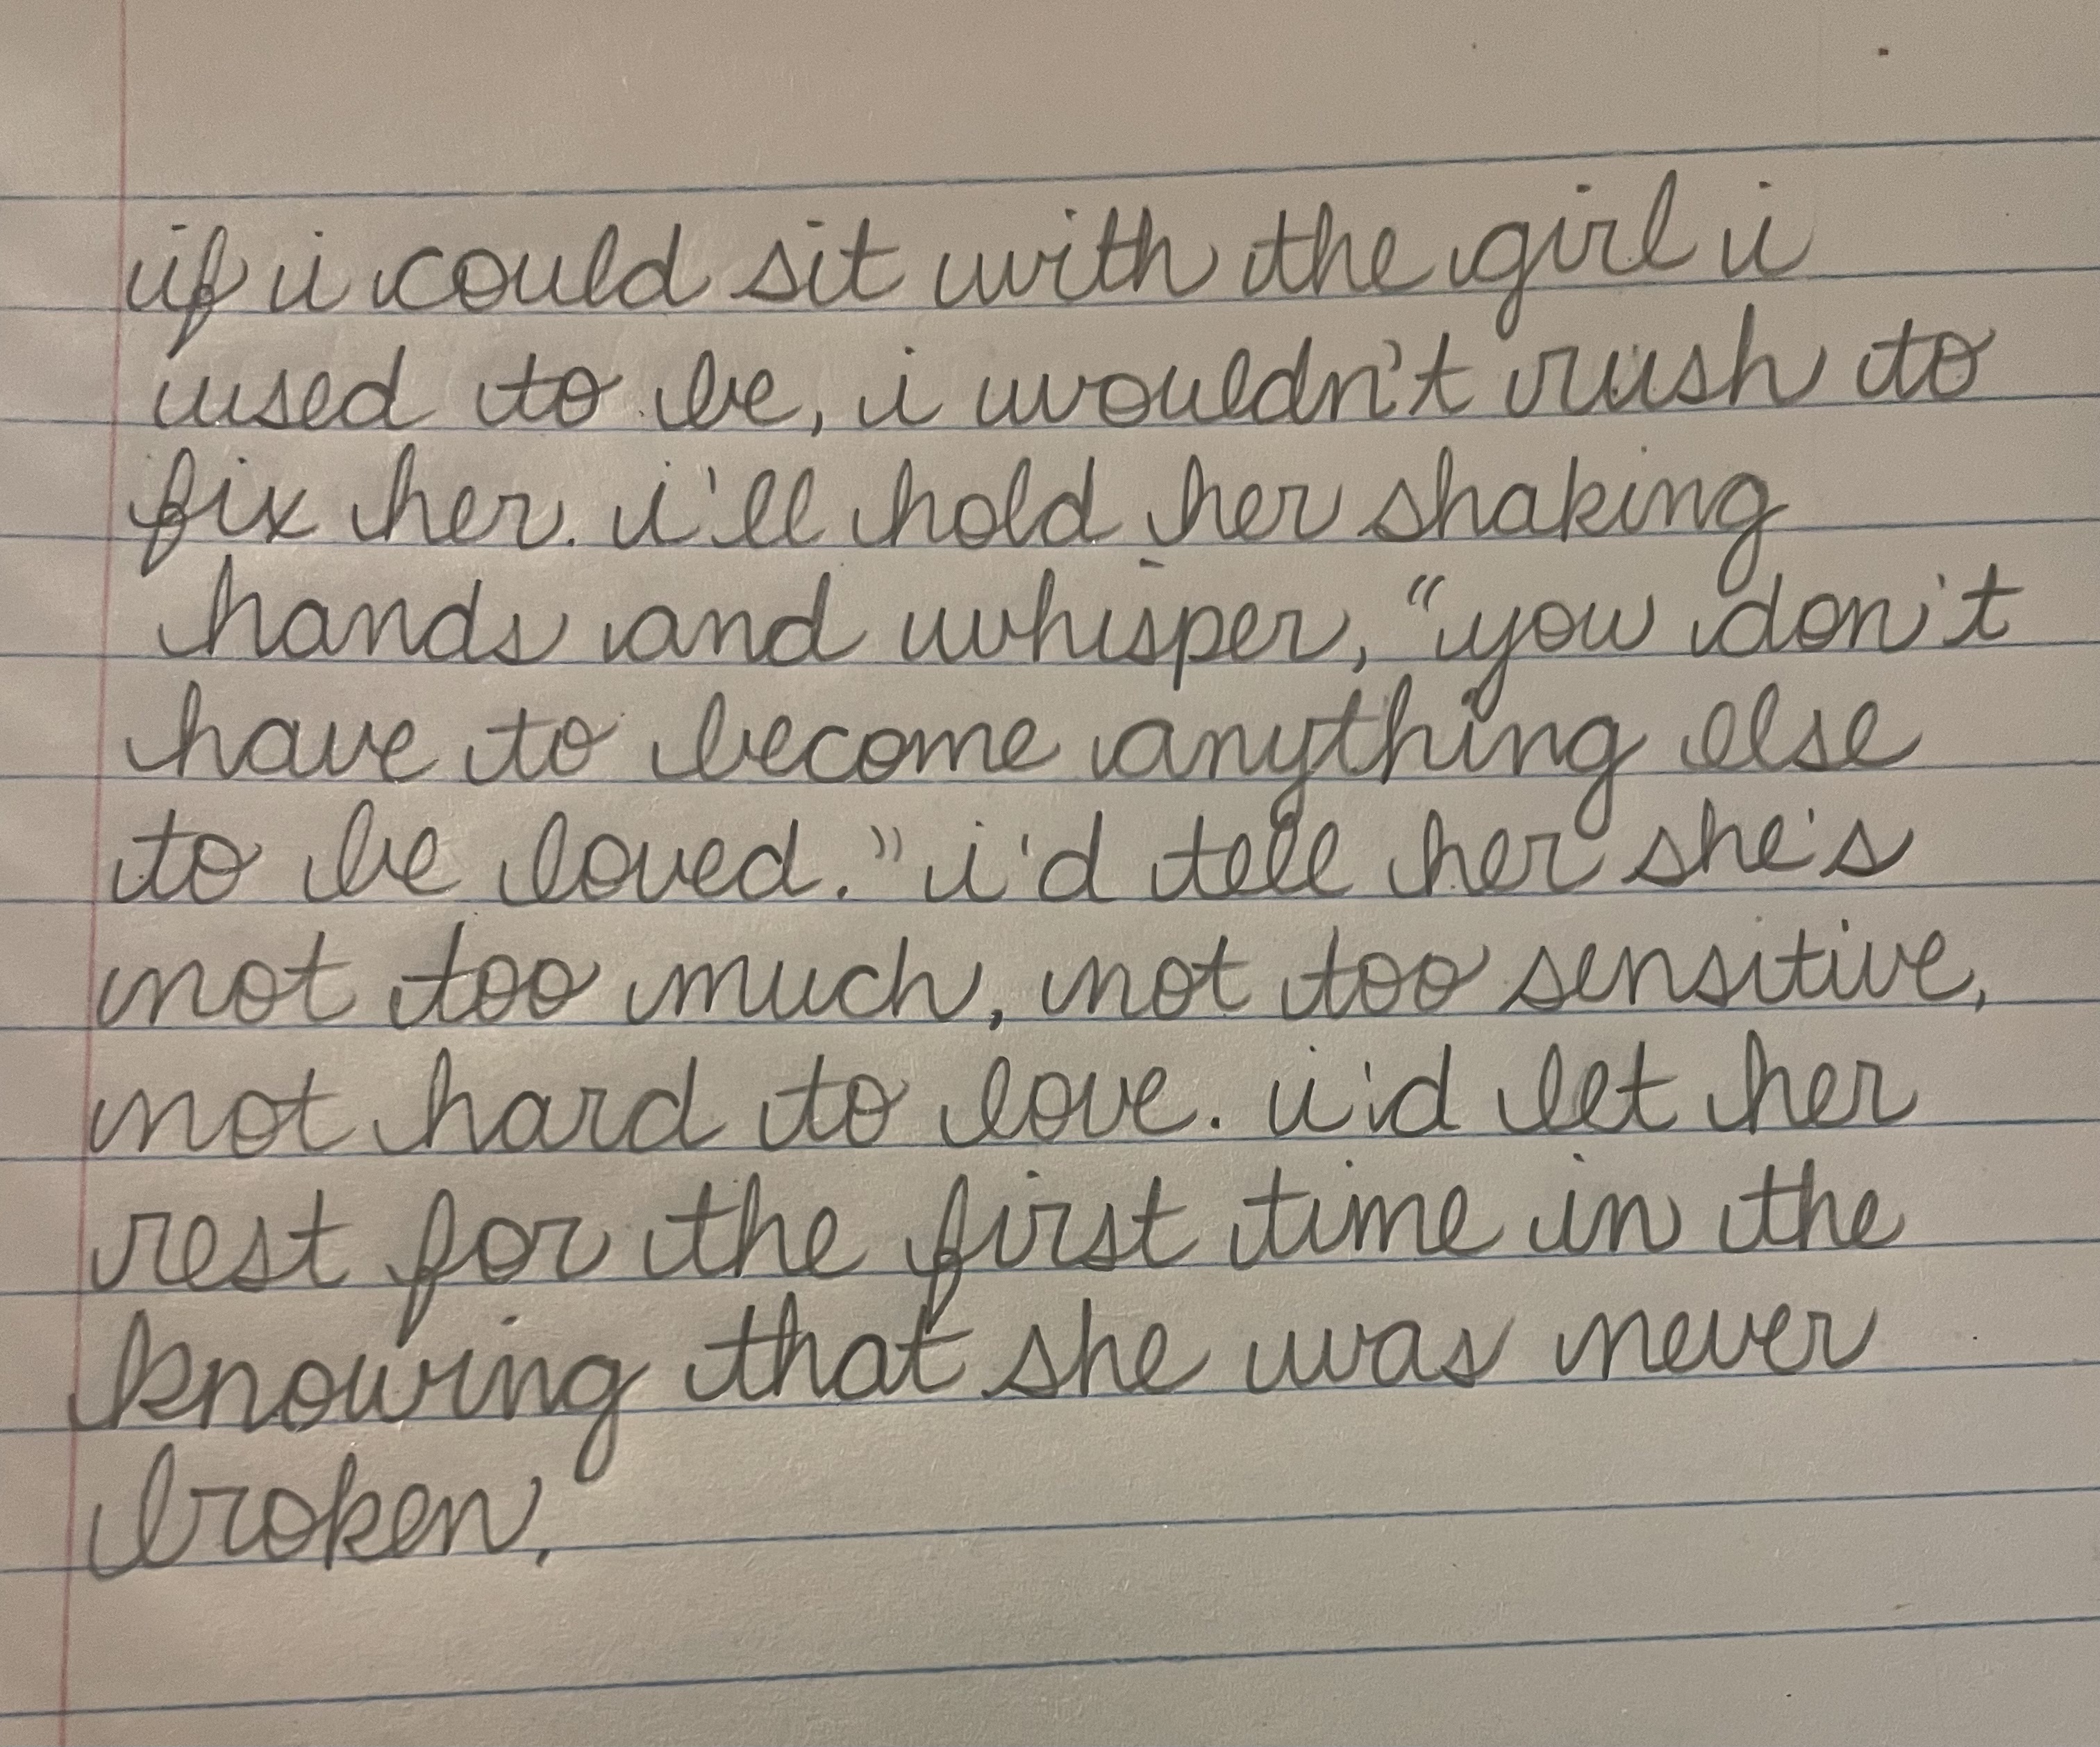 if i could sit with the girl i
used to be, i wouldn't rush to
fix her. i'll hold her shaking
hands and whisper, "you don't
have to become anything else
to be loved." i'd tell her she's
not too much, not too sensitive,
not hard to love. i'd let her
rest for the first time in the
knowing that she was never
broken.